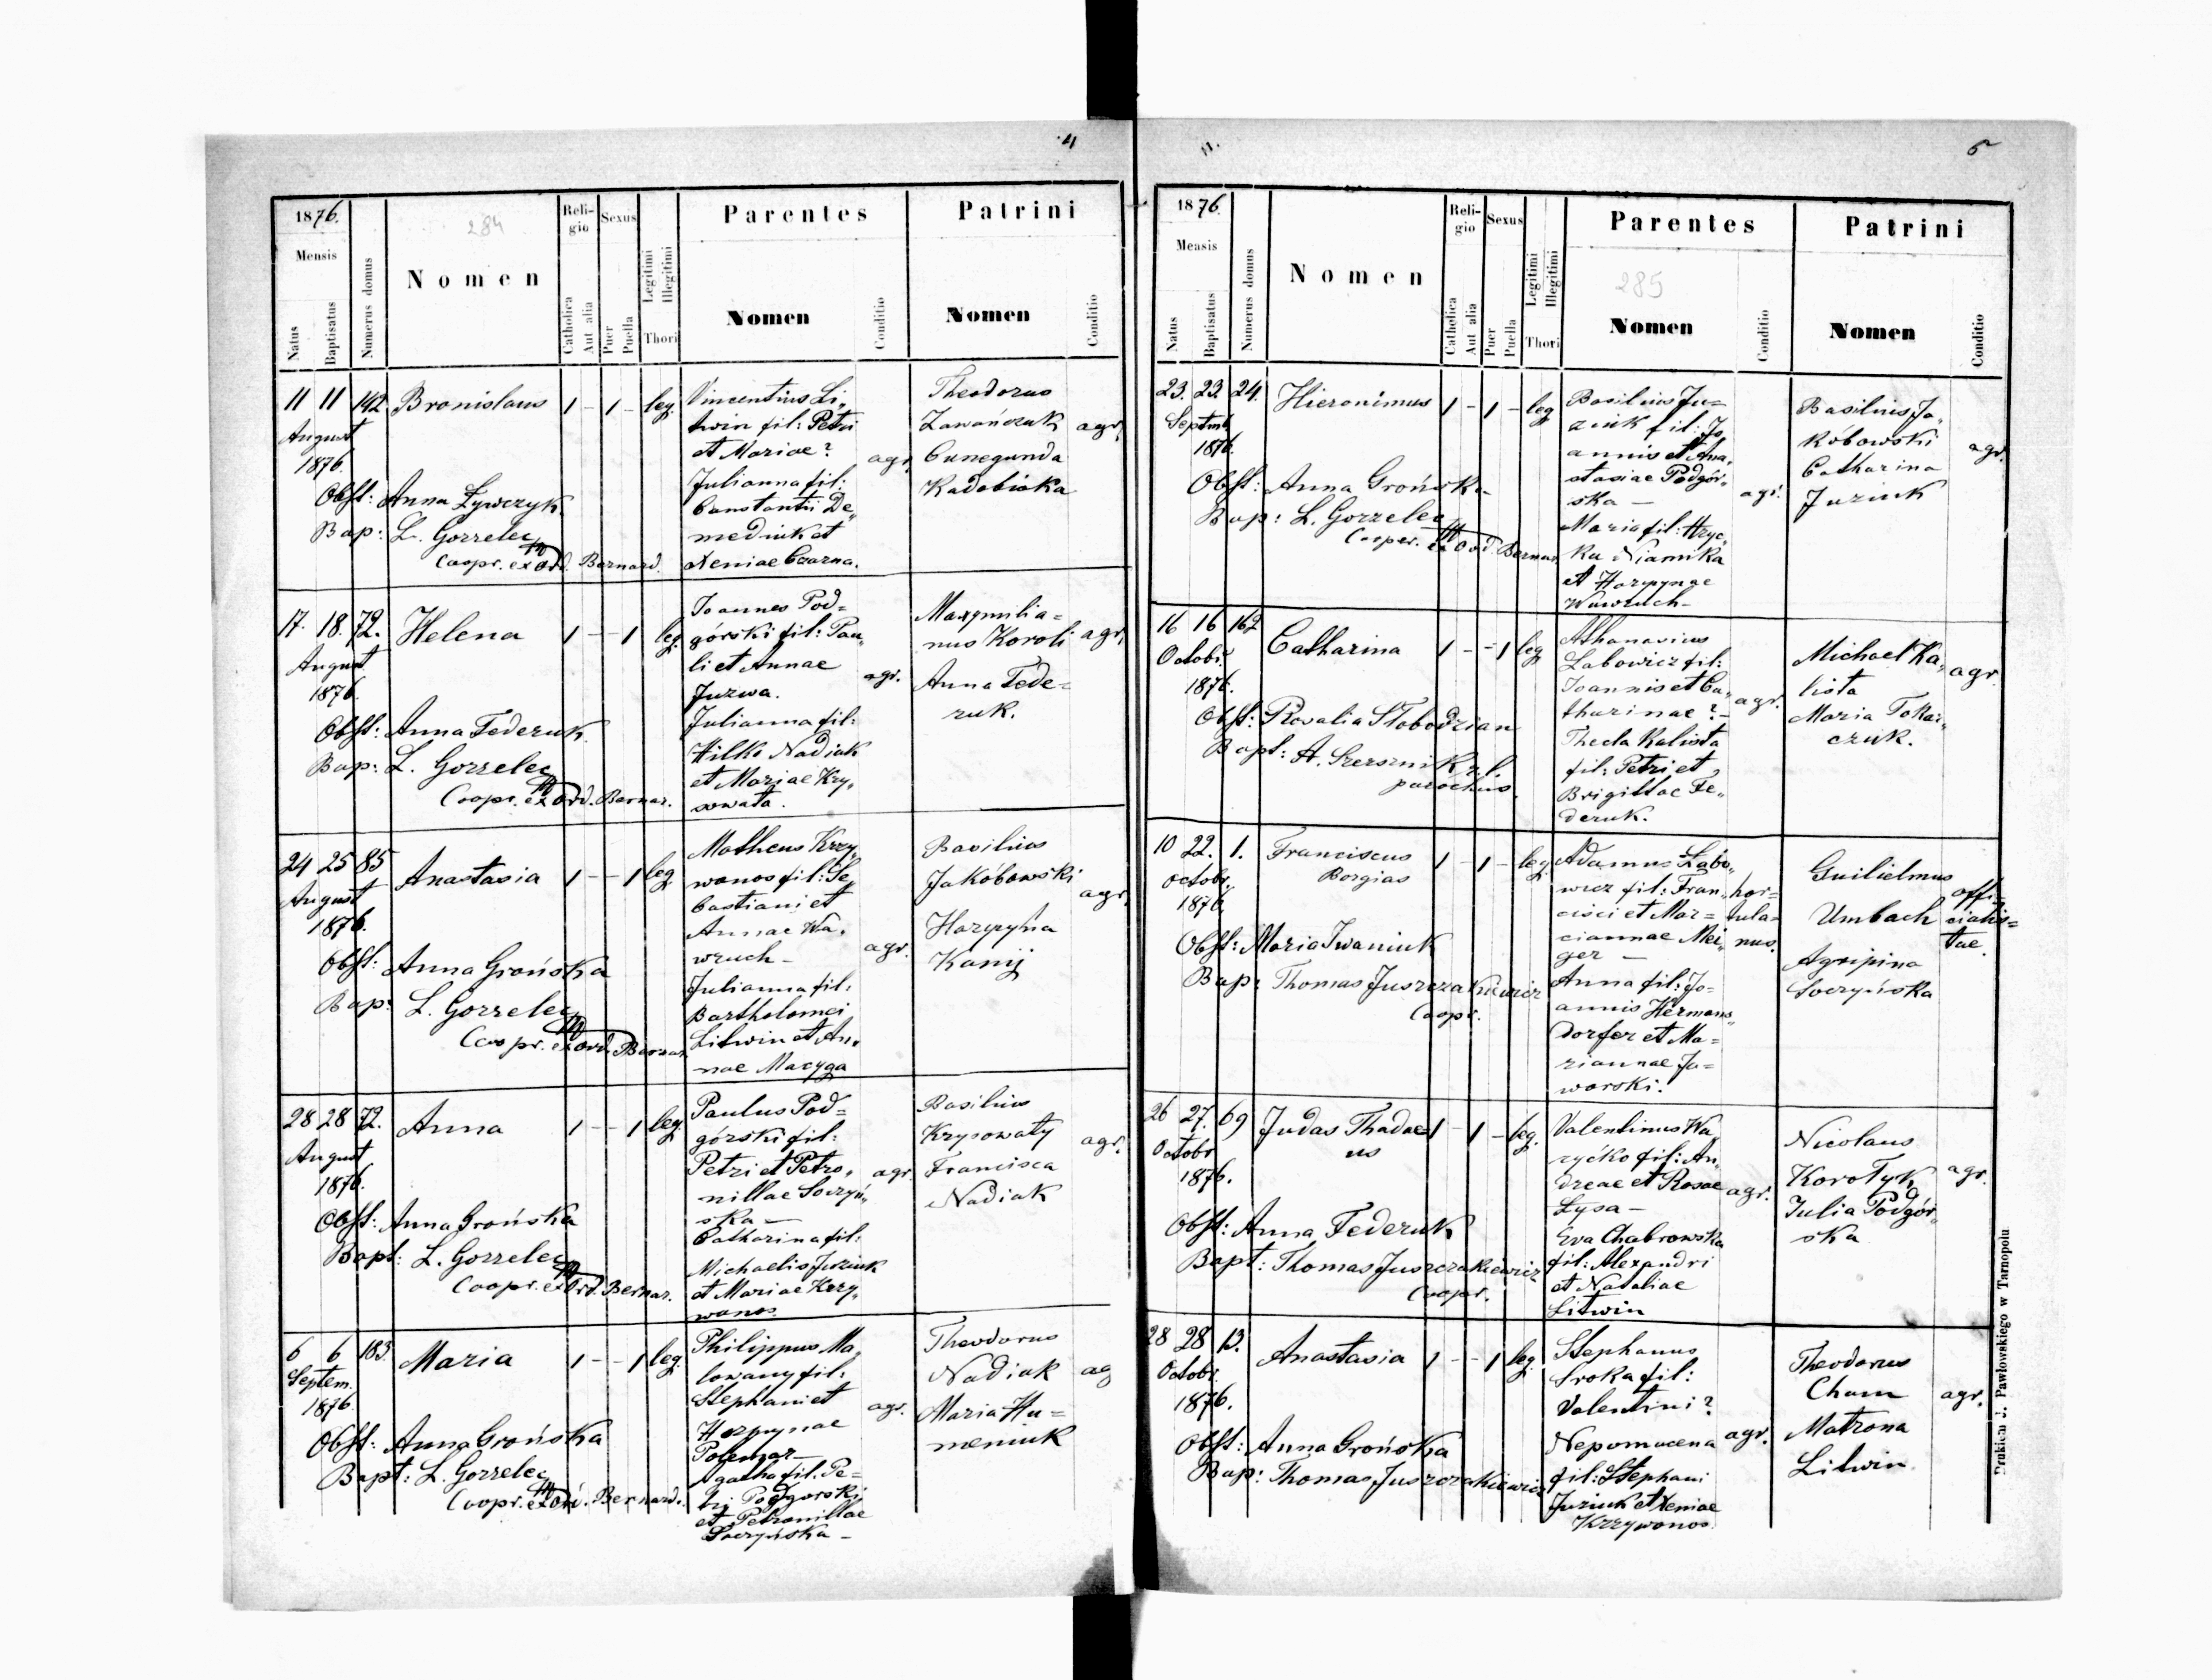 4
1876.
Mensis
Natus
Baptisatus
Numerus domus
284
Nomen
Religio
Catholica
Aut alia
Sexus
Puer
Puella
Legitimi
Illegitimi
Thori
Parentes
Nomen
Conditio
Patrini
Nomen
Conditio
11 11 142 Bronislaus 1 - 1 - leg.
August
1876.
Obst: Anna Żywczyk.
Bap: L. Gorzelec
Coopr. ex Ord. Bernard.
Vincentius Li„
twin fil: Petri
et Mariae?
Julianna fil:
Constantii De„
mediuk et
Xeniae Czarna.
agr.
Theodorus
Zawańczuk
Cunegunda
Kadobiaka
agr.
17. 18. 72. Helena 1 - - 1 leg.
August
1876.
Obst: Anna Federuk.
Bap: L. Gorzelec
Coopr. ex Ord. Bernar.
Joannes Pod=
górski fil: Pau„
li et Annae
Juzwa.
Julianna fil:
Hilko Nadiak
et Mariae Kry„
sowata.
agr.
Maxymilia=
nus Koroli
Anna Fede=
ruk.
agr.
24 25 85 Anastasia 1 - - 1 leg
August
1876.
Obst: Anna Grońska
Bap: L. Gorzelec
Coopr. ex Ord. Bernar.
Matheus Krzy„
wonos fil: Se„
bastiani et
Annae Wa„
wruch -
Julianna fil:
Bartholomei
Litwin et An„
nae Macyga
agr.
Basilius
Jakóbowski
Harpyna
Kanij
agr.
28 28 72. Anna 1 - - 1 leg.
August
1876.
Obst: Anna Grońska
Bapt: L. Gorzelec
Coopr. ex Ord. Bernar.
Paulus Pod=
górski fil:
Petri et Petro„
nillae Soczyń„
ska -
Catharina fil:
Michaelis Juziuk
et Mariae Krzy„
wonos.
agr.
Basilius
Krysowaty
Francisca
Nadiak
agr.
6 6 183. Maria 1 - - 1 leg.
Septem.
1876.
Obst: Anna Grońska
Bapt: L. Gorzelec
Coopr. ex Ord. Bernard.
Philippus Ma„
lowany fil:
Stephani et
Harpynae
agr.
Agatha fil. Pe=
tri Podgorski
et Petronillae
Soczyńska -
Theodorus
Nadiak
Maria Hu=
meniuk
ag
11.
5
1876.
Measis
Natus
Baptisatus
Numerus domus
Nomen
Religio
Catholica
Aut alia
Sexus
Puer
Puella
Legitimi
Illegitimi
Thori
Parentes
285
Nomen
Conditio
Patrini
Nomen
Conditio
23. 23. 24. Hieronimus 1 - 1 - leg
Septmb.
1876.
Obst: Anna Grońska
Bap: L. Gorzelec
Cooper. ex Ord. Bernar.
Basilius Ju=
ziuk fil: Jo
annis et Ana„
stasiae Podgór„
ska -
Maria fil: Hryc„
ka Niamka
et Harpynae
Wawruch -
agr.
Basilius Ja„
kóbowski
Catharina
Juziuk
agr.
16 16 162 Catharina 1 - - 1 leg
Octobr.
1876.
Obst: Rosalia Słobodzian
Bapt: A. Szersznik r.l.
parochus.
Athanasius
Labowicz fil:
Joannis et Ca„
tharinae? -
Thecla Kalista
fil: Petri et
Brigittae Fe„
deruk.
agr.
Michael Ka„
lista
Maria Tokar„
czuk.
agr.
10 22. 1. Franciscus 1 - 1 - leg.
Borgias
octobr.
1876.
Obst: Maria Iwaniuk
Bap: Thomas Juszczakiewicz
Coopr.
Adamus Łabo„
wicz fil: Fran„
cisci et Mar=
ciannae Mei„
ger -
Anna fil: Jo=
annis Hermans„
dorfer et Ma=
riannae Ja=
worski.
hor=
tula=
nus.
Guilielmus
Umbach
Agripina
Soczyńska
offi„
cialis=
tae.
26 27. 69 Judas Thadae 1 - 1 - leg.
us
Octobr
1876.
Obst: Anna Federuk
Bapt: Thomas Juszczakiewicz
Coopr.
Valentinus Wa
ryćko fil: An„
dreae et Rosae
Łysa -
Eva Chabrowska
fil: Alexandri
et Nataliae
Litwin
agr.
Nicolaus
Korotyk
Julia Podgór„
ska
agr.
28 28 13. Anastasia 1 - - 1 leg.
Octobr.
1876.
Obst: Anna Grońska
Bap: Thomas Juszczakiewicz
Stephanus
Sroka fil:
Valentini?
Nepomucena
fil: Stephani
Juziuk et Xeniae
Krzywonos.
agr.
Theodorus
Cham
Matrona
Litwin
agr.
Drukiem J. Pawłowskiego w Tarnopolu